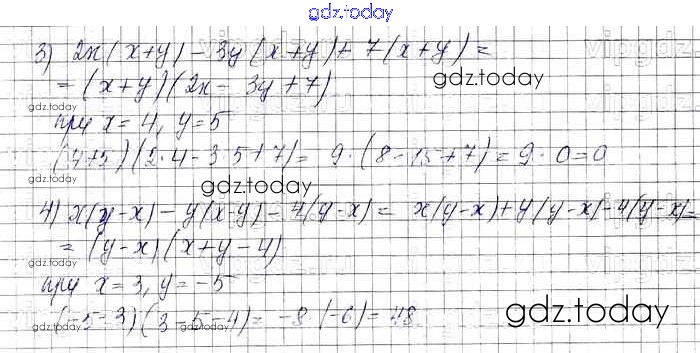 gdz.today
3) 2x(x+y) - 3y(x+y) + 7(x+y) =
= (x+y)(2x - 3y + 7)
gdz.today
gdz.today
при x = 4, y = 5
(4+5)(2·4 - 3·5 + 7) = 9·(8 - 15 + 7) = 9·0 = 0
gdz.today
gdz.today
4) x(y-x) - y(x-y) - 4(y-x) = x(y-x) + y(y-x) - 4(y-x) =
= (y-x)(x+y-4)
gdz.today
при x = 3, y = -5
(-5-3)(3-5-4) = -8·(-6) = 48
gdz.today
gdz.today
gdz.today